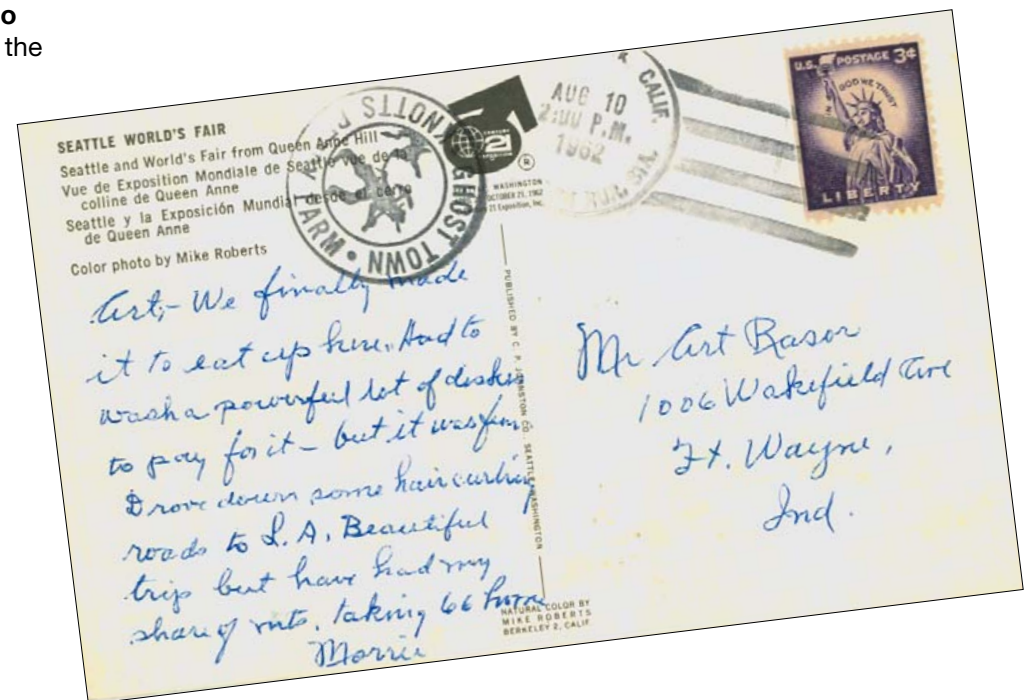 o
the
SEATTLE WORLD'S FAIR
Seattle and World's Fair from Queen Anne Hill
Vue de Exposition Mondiale de Seattle vue de la
colline de Queen Anne
Seattle y la Exposición Mundial desde el cerro
de Queen Anne
Color photo by Mike Roberts
KNOTTS GHOST TOWN • FARM
CENTURY
21
®
WASHINGTON
OCTOBER 21, 1962
21 Exposition, Inc.
CALIF.
AUG 10
2:00 P.M.
1962
U.S. POSTAGE 3¢
IN GOD WE TRUST
LIBERTY
Art,- We finally made
it to eat up here. Had to
wash a powerful lot of dishes
to pay for it - but it was fun
Drove down some haircurling
roads to L.A. Beautiful
trip but have had my
share of mts. taking 66 home
Morrie
PUBLISHED BY C. P. JOHNSTON CO. SEATTLE, WASHINGTON
NATURAL COLOR BY
MIKE ROBERTS
BERKELEY 2, CALIF.
Mr Art Rasor
1006 Wakefield Ave
Ft. Wayne,
Ind.